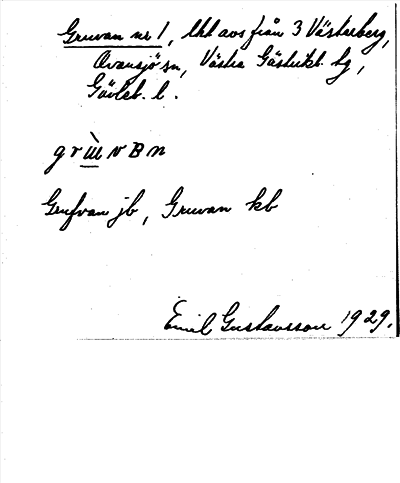 Gruvan nr 1, lht avs från 3 Västerberg,
Ovansjö sn, Västra Gästrikl. tg,
Gävleb. l.
grɯ̀vBn
Grufvan jb, Gruvan kb
Emil Gustavsson 1929.